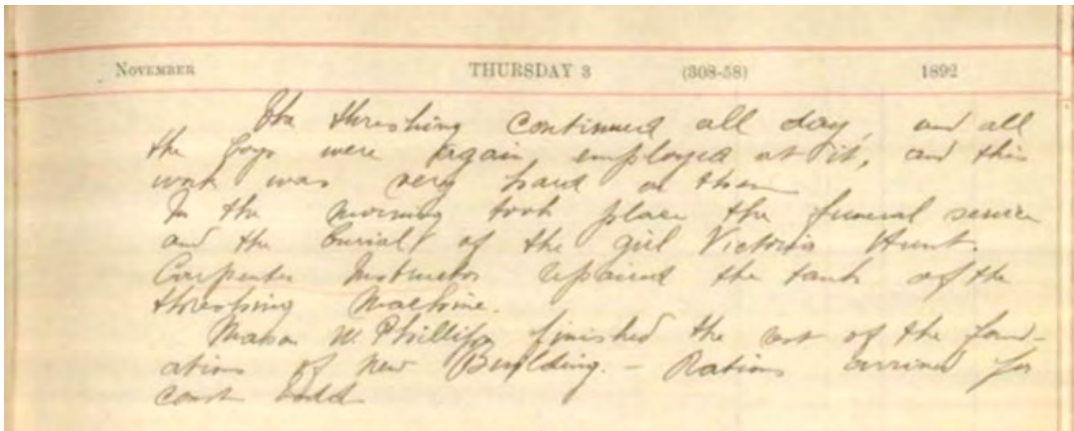 NOVEMBER THURSDAY 3 (308-58) 1892
The threshing continued all day, and all
the boys were again employed at it, and this
work was very hard on them
In the morning took place the funeral service
and the burial of the girl Victoria Hunt.
Carpenter Instructor repaired the tank of the
threshing machine.
Mason W. Phillips finished the rest of the found-
ations of new Building. - Rations arrived for
const. Dodd